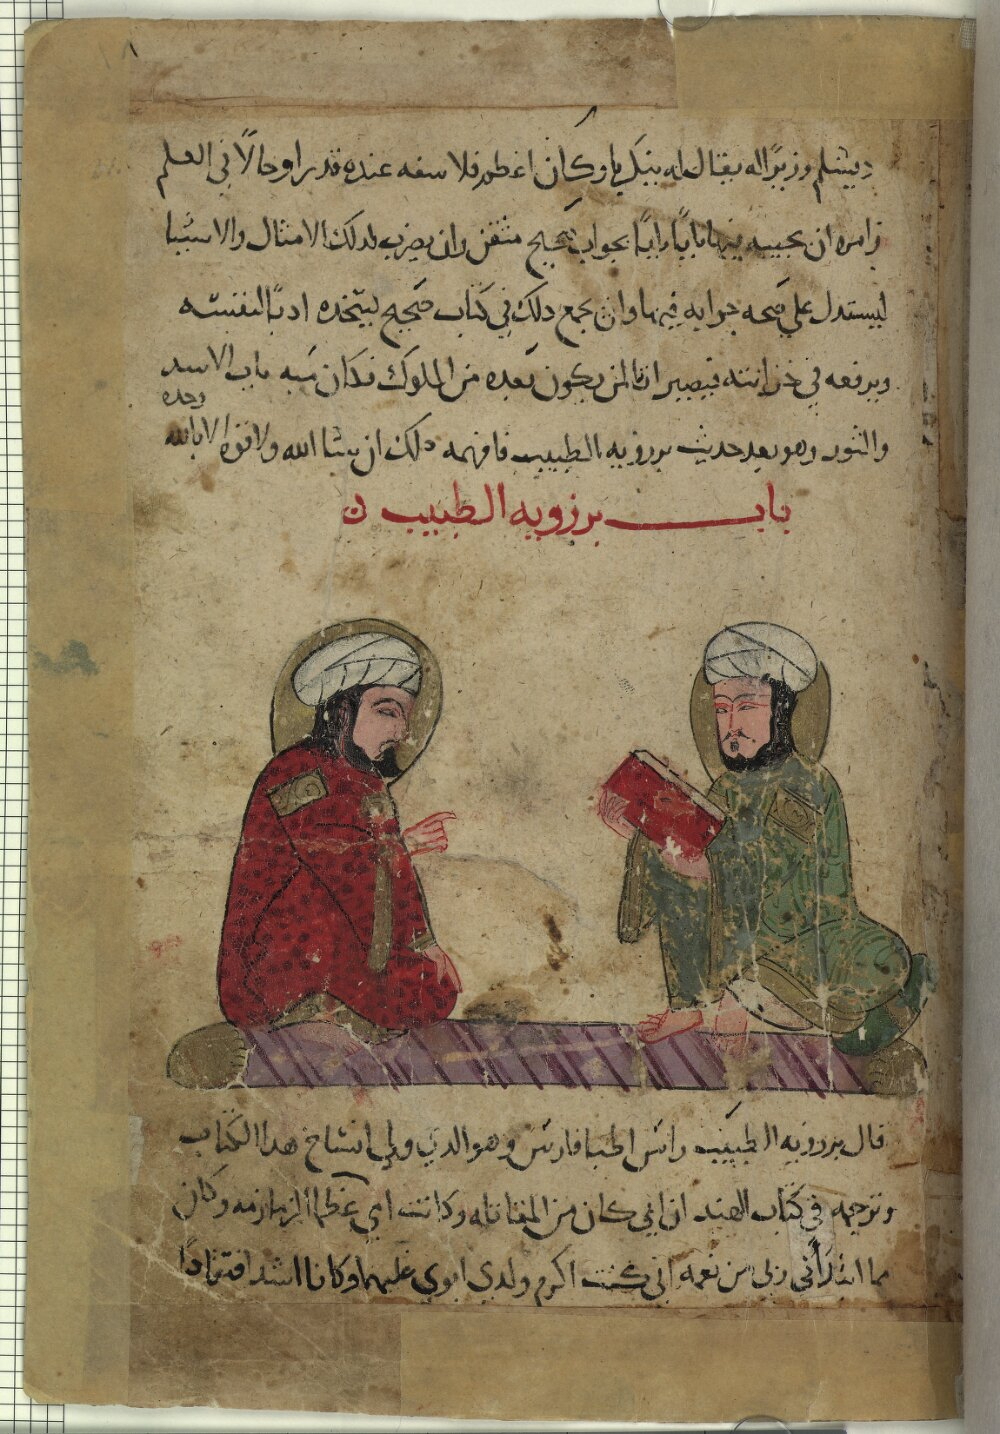 ١٨
دبشلم وزيرًا له يقال له بيدبا وكان اعظم فلاسفه عنده قدرا وحالا في العلم
فامره ان يجيبه فيها بابًا بابًا بجواب صحيح متقن وان يضرب لذلك الامثال والاشبا
ليستدل علي صحه جوابه فيها وان يجمع ذلك في كتاب صحيح ليتخذه ادبًا لنفسه
ويرفعه في خزانته فيصير ارثا لمن يكون بعده من الملوك فكان منه باب الاسد
والثور وهو بعد حديث برزويه الطبيب فافهمه ذلك ان شا الله ولا قوه الا بالله
وحده
باب برزويه الطبيب
قال برزويه الطبيب راس اطبا فارس وهو الذي ولي انتساخ هذا الكتاب
وترجمه في كتاب الهند ان ابي كان من المقاتله وكانت امي من عظما الزمازمه وكان
مما ابتداني ربي من نعمه اني كنت اكرم ولدي ابوي عليهما وكانا اشد افتقادًا